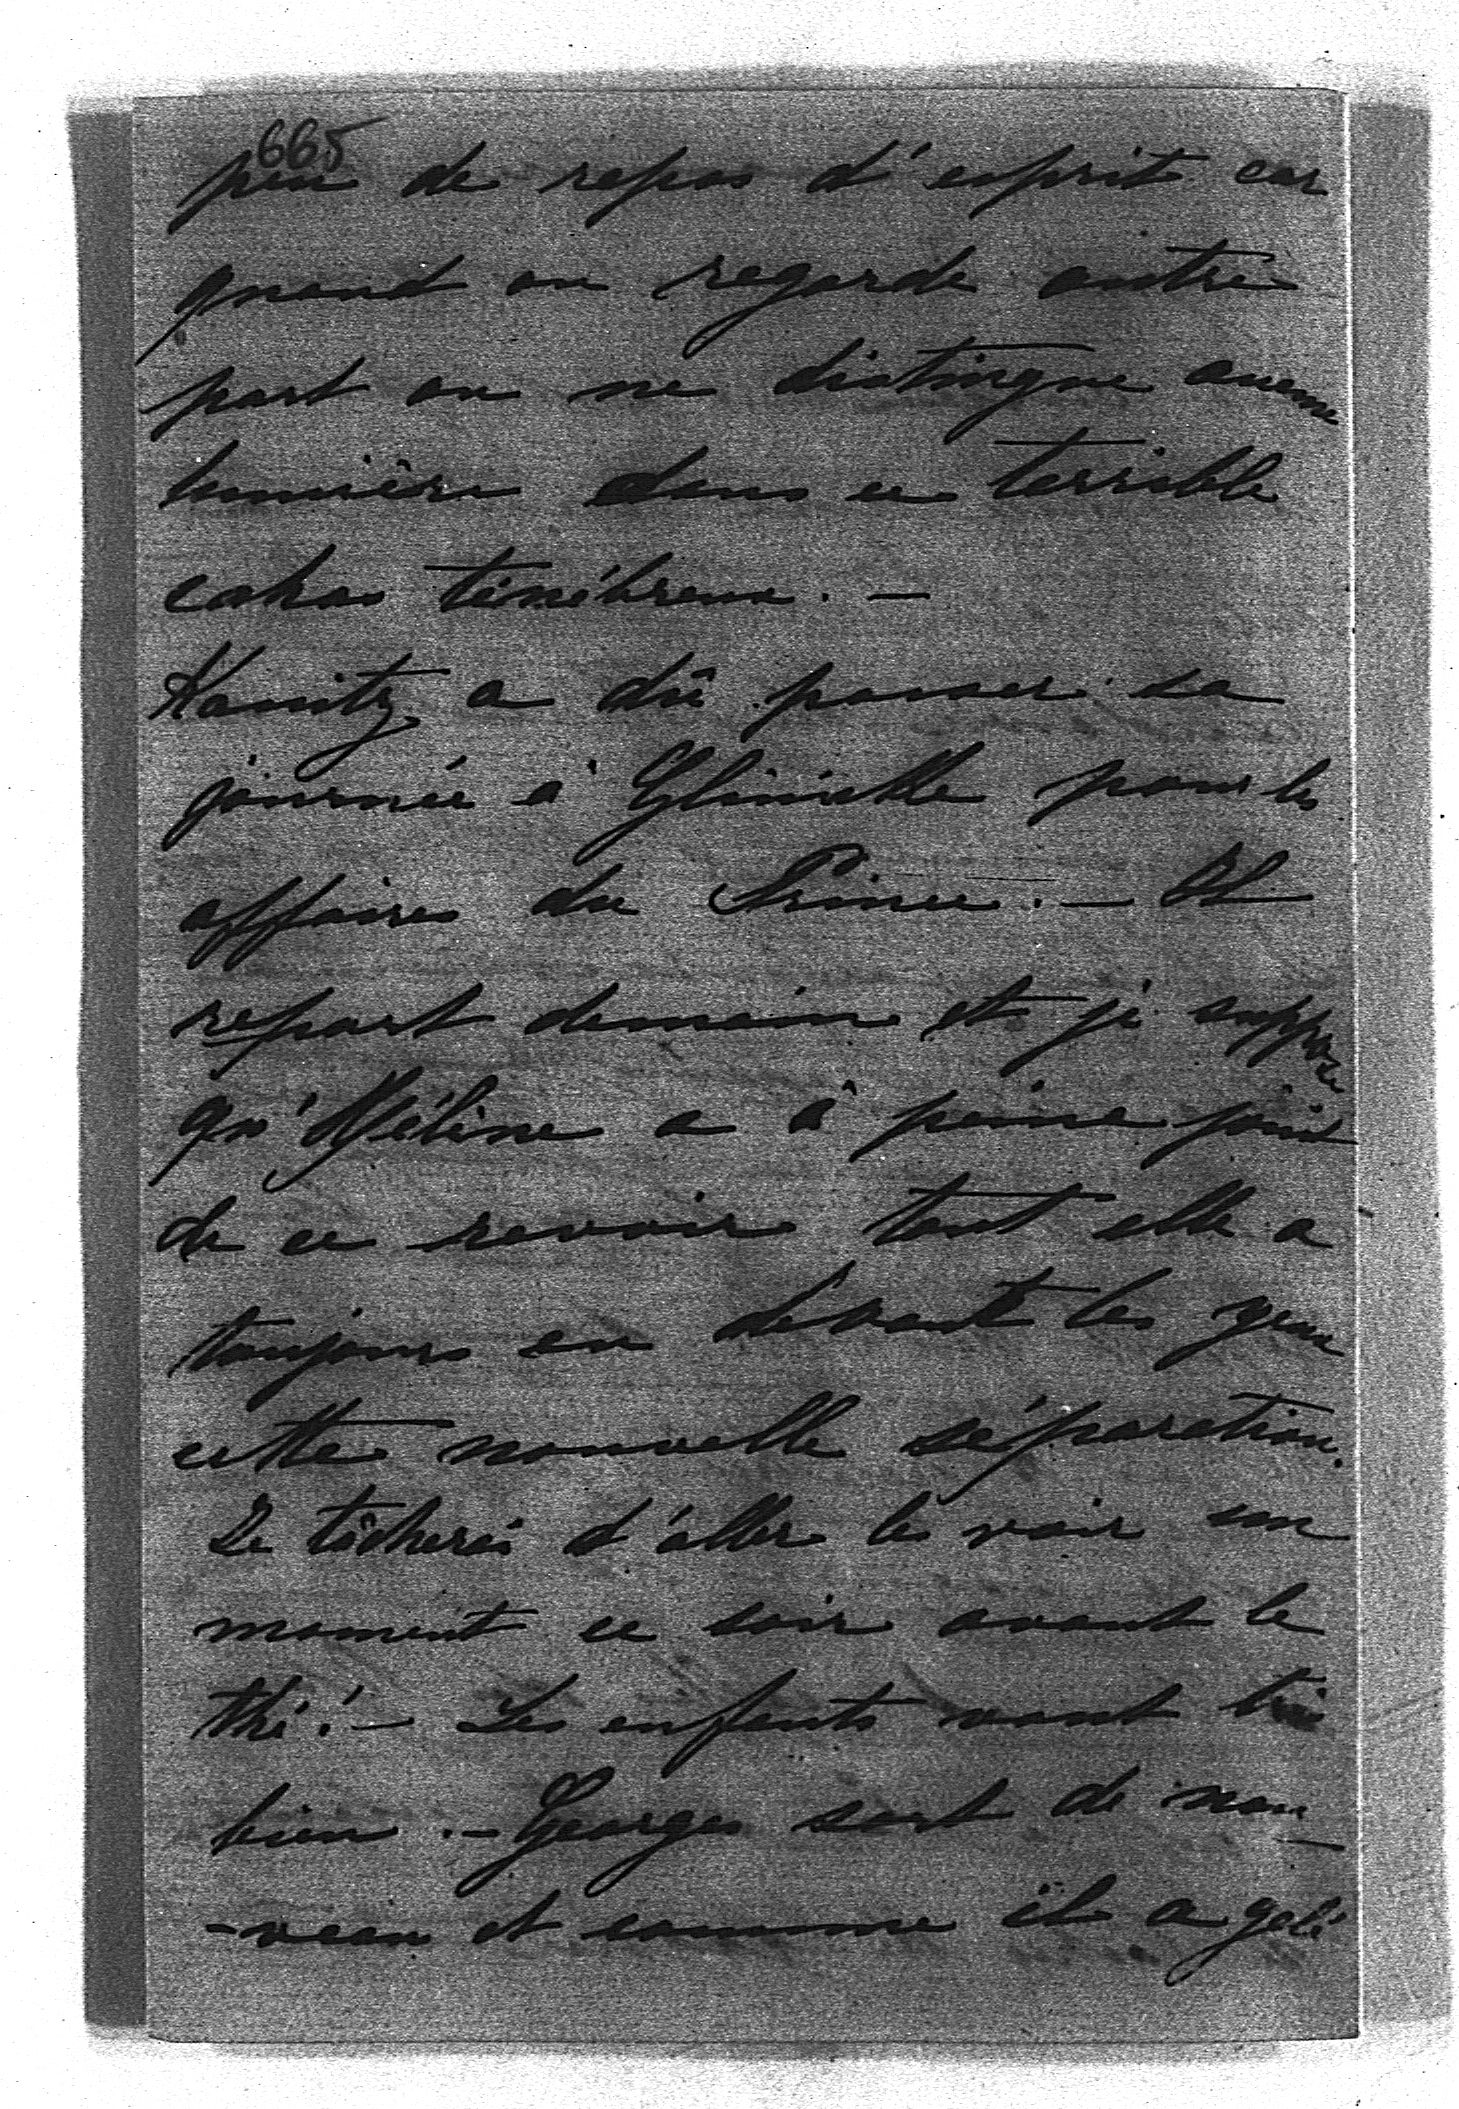 665
peu de repos d'esprit car
quand on regarde autre
part on ne distingue aucune
lumière dans ce terrible
cahos ténébreux. —
Kanitz a dû passer sa
journée à Glinicke pour les
affaires du Prince. — Il
repart demain et je suppose
qu'Hélène a à peine joui
de ce revoir tant elle a
toujours eu devant les yeux
cette nouvelle séparation.
Je tâcherai d'aller les voir un
moment ce soir avant le
thé. — Les enfants vont très
bien. — Georges sort de nou-
-veau et comme il a gelé